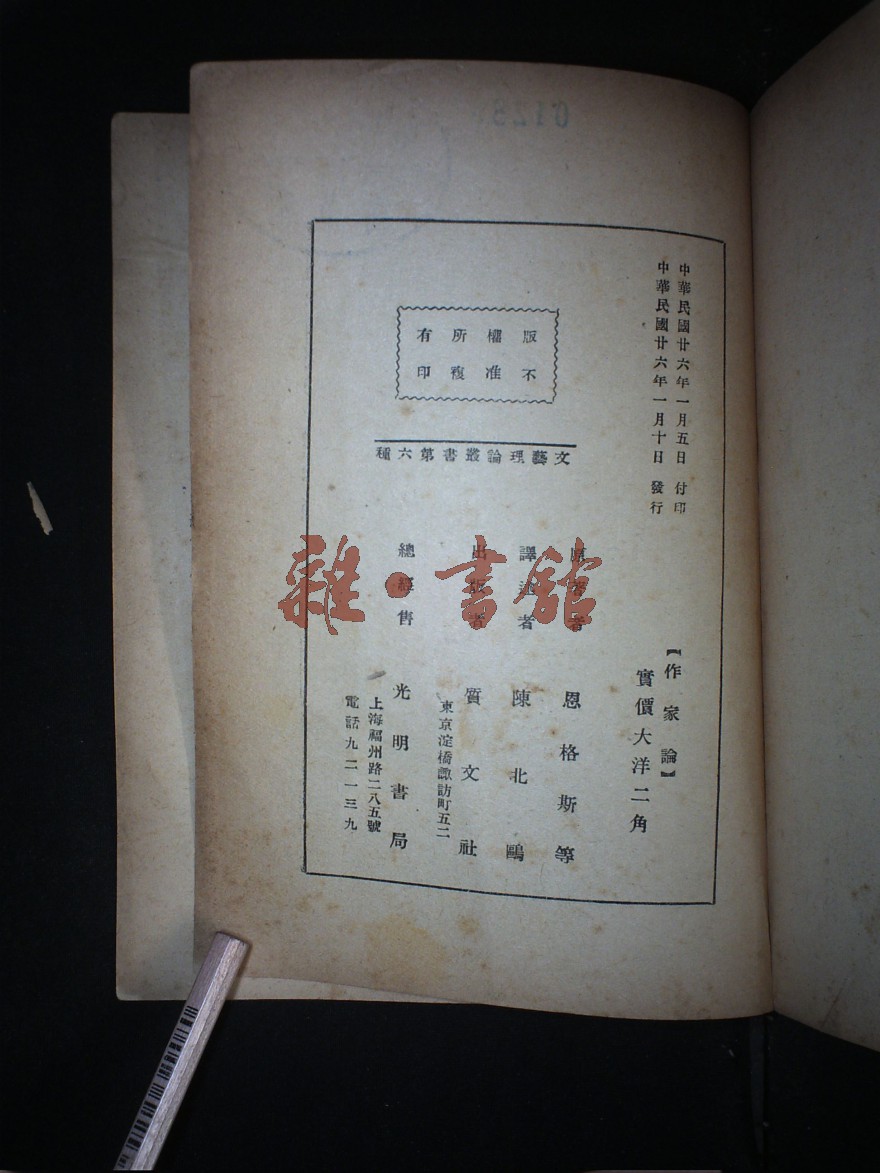 中華民國廿六年一月五日 付印
中華民國廿六年一月十日 發行
【作家論】
實價大洋二角
原著者 恩格斯等
譯述者 陳北鷗
出版者 質文社
東京淀橋諏訪町五二
總經售 光明書局
上海福州路二八五號
電話九二一三九
版權所有
不准複印
文藝理論叢書第六種
雜·書館
0128